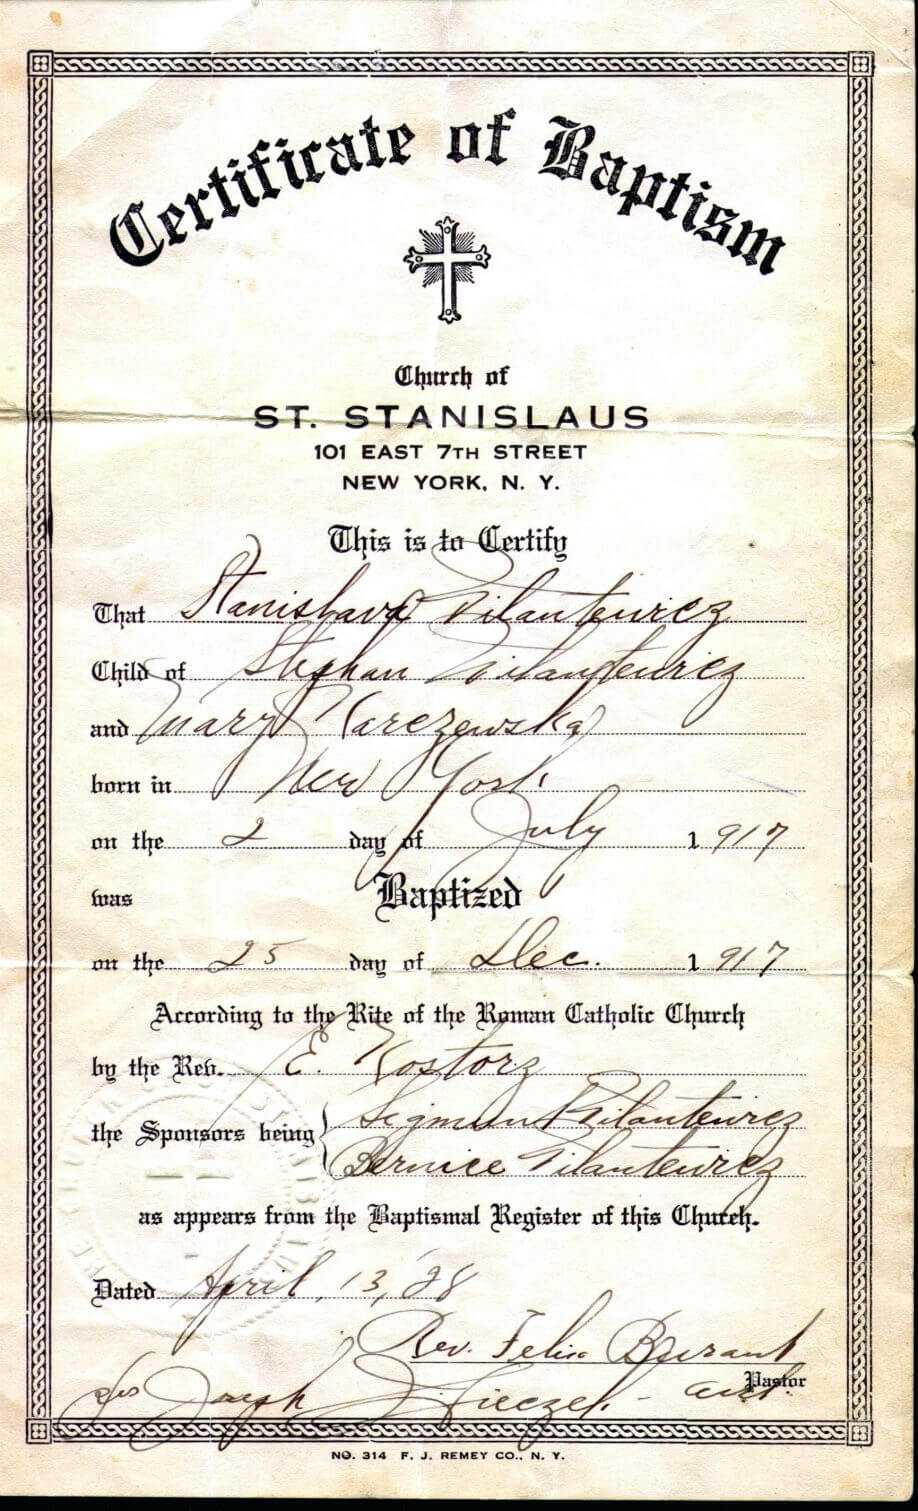 Certificate of Baptism
Church of
ST. STANISLAUS
101 EAST 7TH STREET
NEW YORK, N. Y.
This is to Certify
That Stanislava Pilantewicz
Child of Stephan Pilantewicz
and Mary Karczewska
born in New York
on the 2 day of July 1917
was Baptized
on the 25 day of Dec. 1917
According to the Rite of the Roman Catholic Church
by the Rev. E. Kostorz
the Sponsors being Sigmund Pilantewicz
Bernice Pilantewicz
as appears from the Baptismal Register of this Church.
Dated April, 13, '28
Rev. Felix Burant
Pastor
Joseph
NO. 314 F. J. REMEY CO., N. Y.